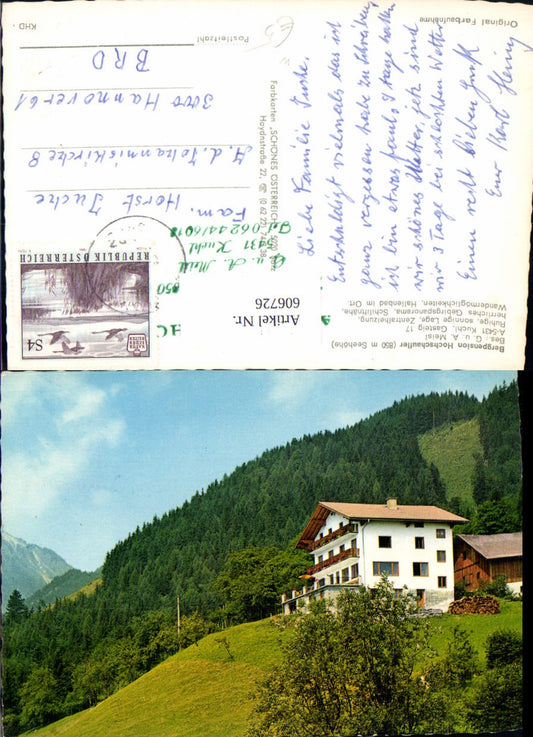 Bergpension Hochschaufler (850 m Seehöhe)
Bes.: G. u. A. Meisl
A-5431 Kuchl, Gasteig 17
Ruhige, sonnige Lage, Zentralheizung,
herrliches Gebirgspanorama, Schilifte
Wandermöglichkeiten, Hallenbad im Ort.
Liebe Familie
Entschuldigt vielmals das ich
ganz vergessen habe zu schreiben
ich bin etwas faul, 9 Tage hatten
wir schönes Wetter, jetzt sind
wir 3 Tage bei schlechten Wetter
Einen recht lieben Gruß
Euer
Farbkarten „SCHÖNES ÖSTERREICH", 5020
Haydnstraße 22,
Artikel Nr.
606726
G. u. A. Meisl
5431 Kuchl
850
REPUBLIK ÖSTERREICH
S4
Fam.
Horst
A. d. Johanniskirche 8
3000 Hannover 61
BRD
Postleitzahl
Original Farbaufnahme
KHD